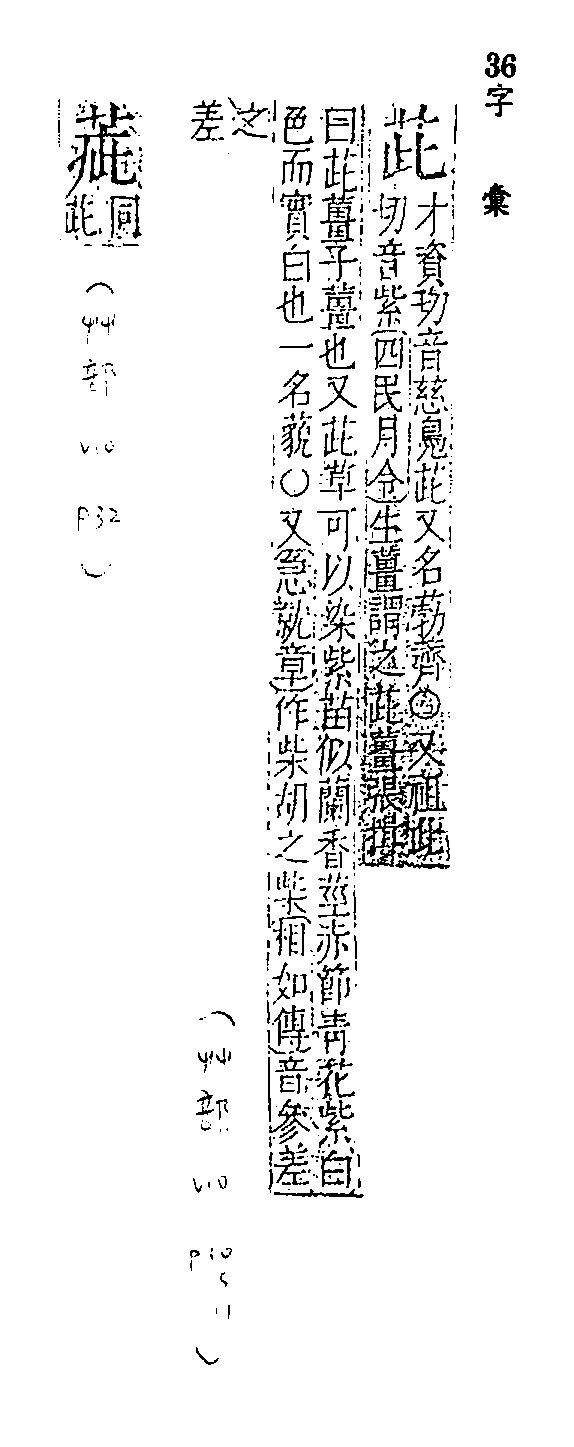 36 字彙
茈 才資切音慈鳧茈又名勃薺○又祖此
切音紫四民月令生薑謂之茈薑張揖
曰茈薑子薑也又茈草可以染紫苗似蘭香莖赤節青花紫白
色而實白也一名藐○又急就章作柴胡之柴相如傳音參差
之
差
(艸部 v10 p10 11)
同
茈
(艸部 v10 p32)